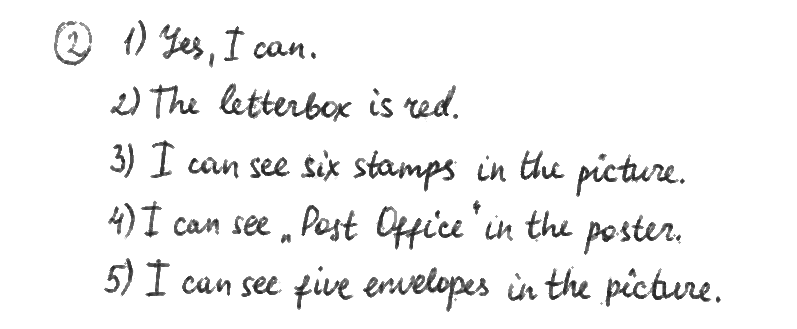 ② 1) Yes, I can.
2) The letterbox is red.
3) I can see six stamps in the picture.
4) I can see „Post Office“ in the poster.
5) I can see five envelopes in the picture.